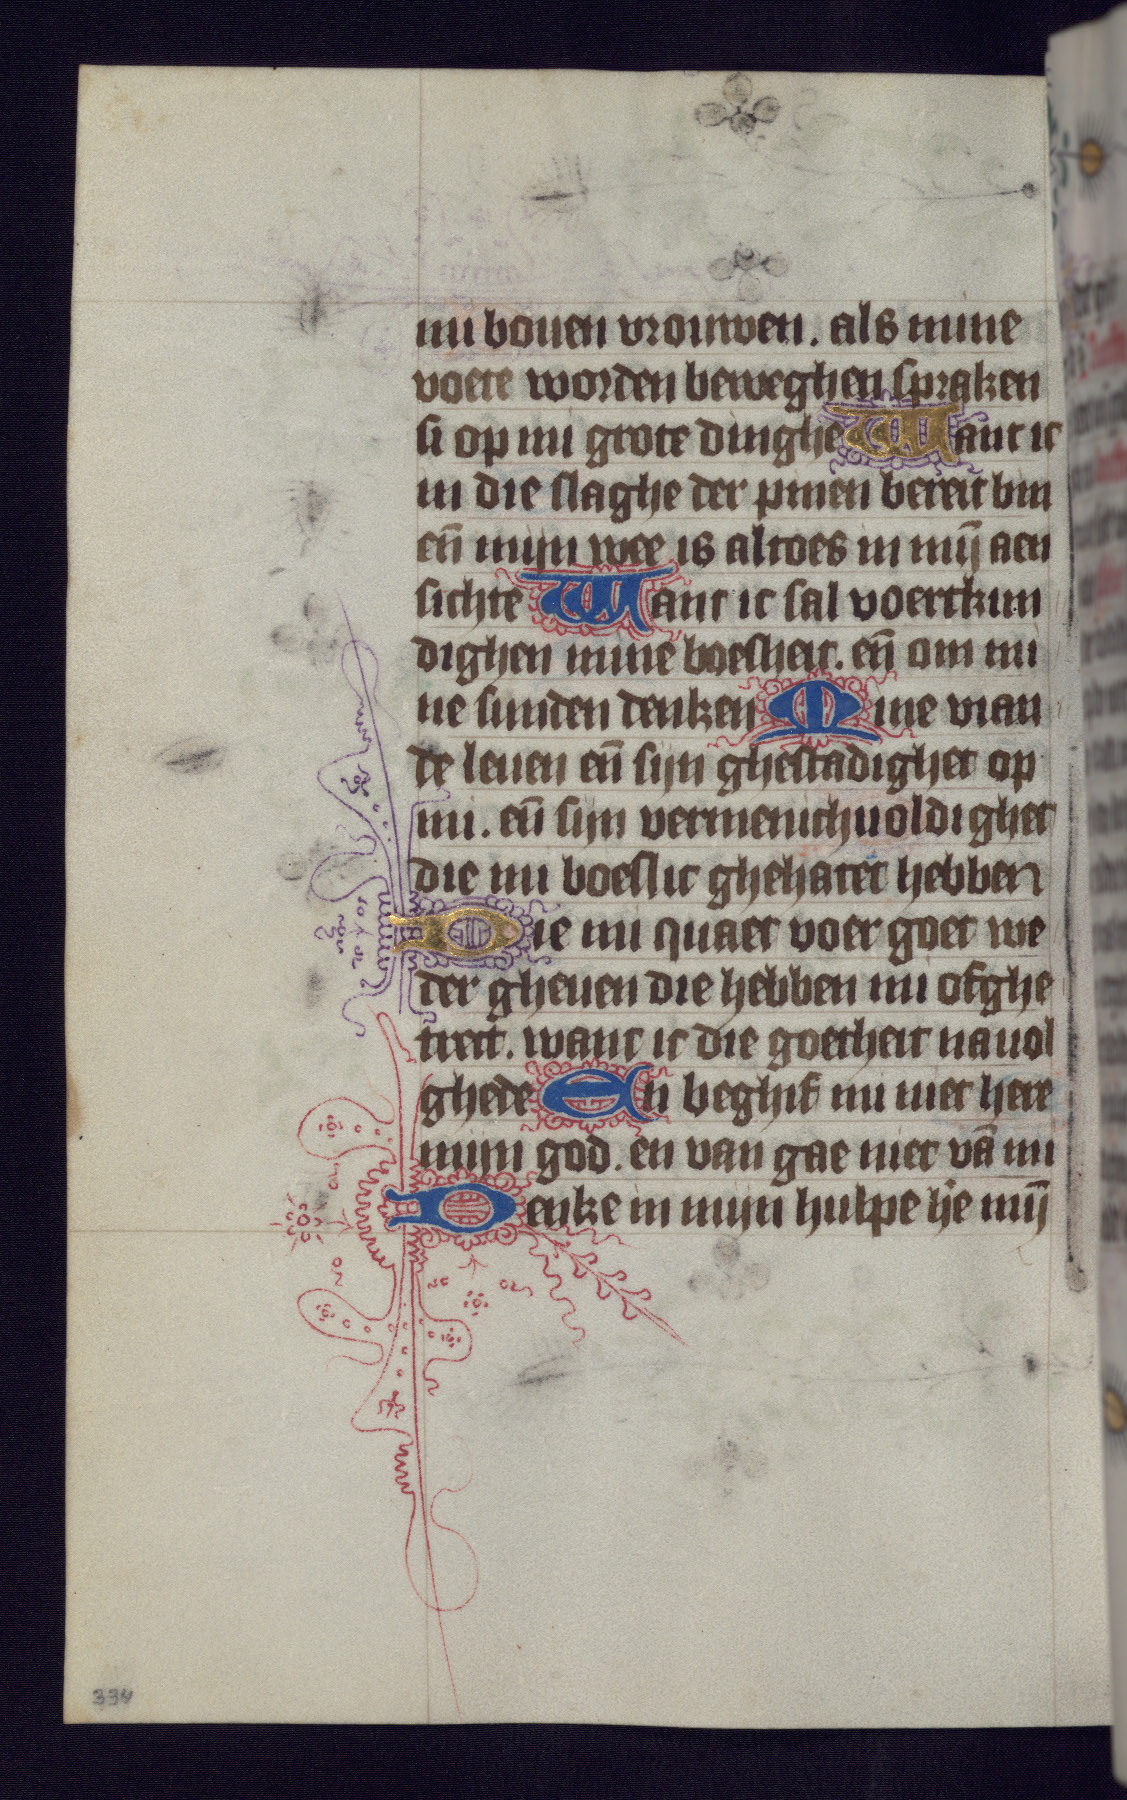 mi bouen vrouwen. als mine
voete worden beweghen spraken
si op mi grote dinghe Want ic
in die slaghe der pinen bereit bin
eñ mijn wee is altoes in mij̄ aen
sichte Want ic sal voertkun
dighen mine boesheit. eñ om mi
ne sunden denken Mine vian
de leuen eñ sijn ghestadighet op
mi. eñ sijn vermenichuoldighet
die mi boeslic ghehatet hebben
Die mi quaet voer goet we
der gheuen die hebben mi ofghe
trect. want ic die goetheit nauol
ghede En beghif mi niet here
mijn god. en van gae niet vā mi
Denke in mijn hulpe h̄e mij̄
334